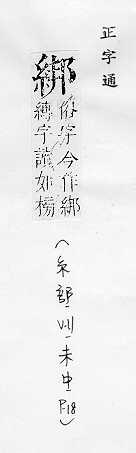 正字通
綁
俗字今作綁
縛字讀如榜
(糸部-
未中-P.18)